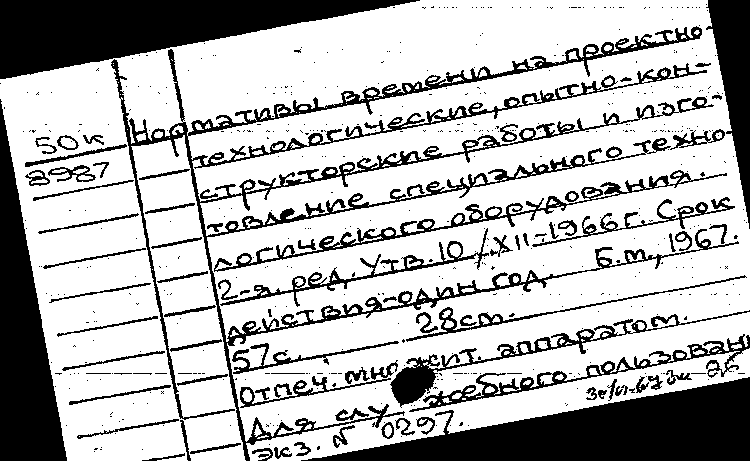 50к
8987
Нормативы времени на проектно-
технологические, опытно-кон-
структорские работы и изго-
товление специального техно-
логического оборудования.
2-я. ред. Утв. 10/XII-1966г. Срок
действия-один год. Б.м., 1967.
57с. 28см.
Отпеч. множит. аппаратом.
Для служебного пользован
экз. № 0297.